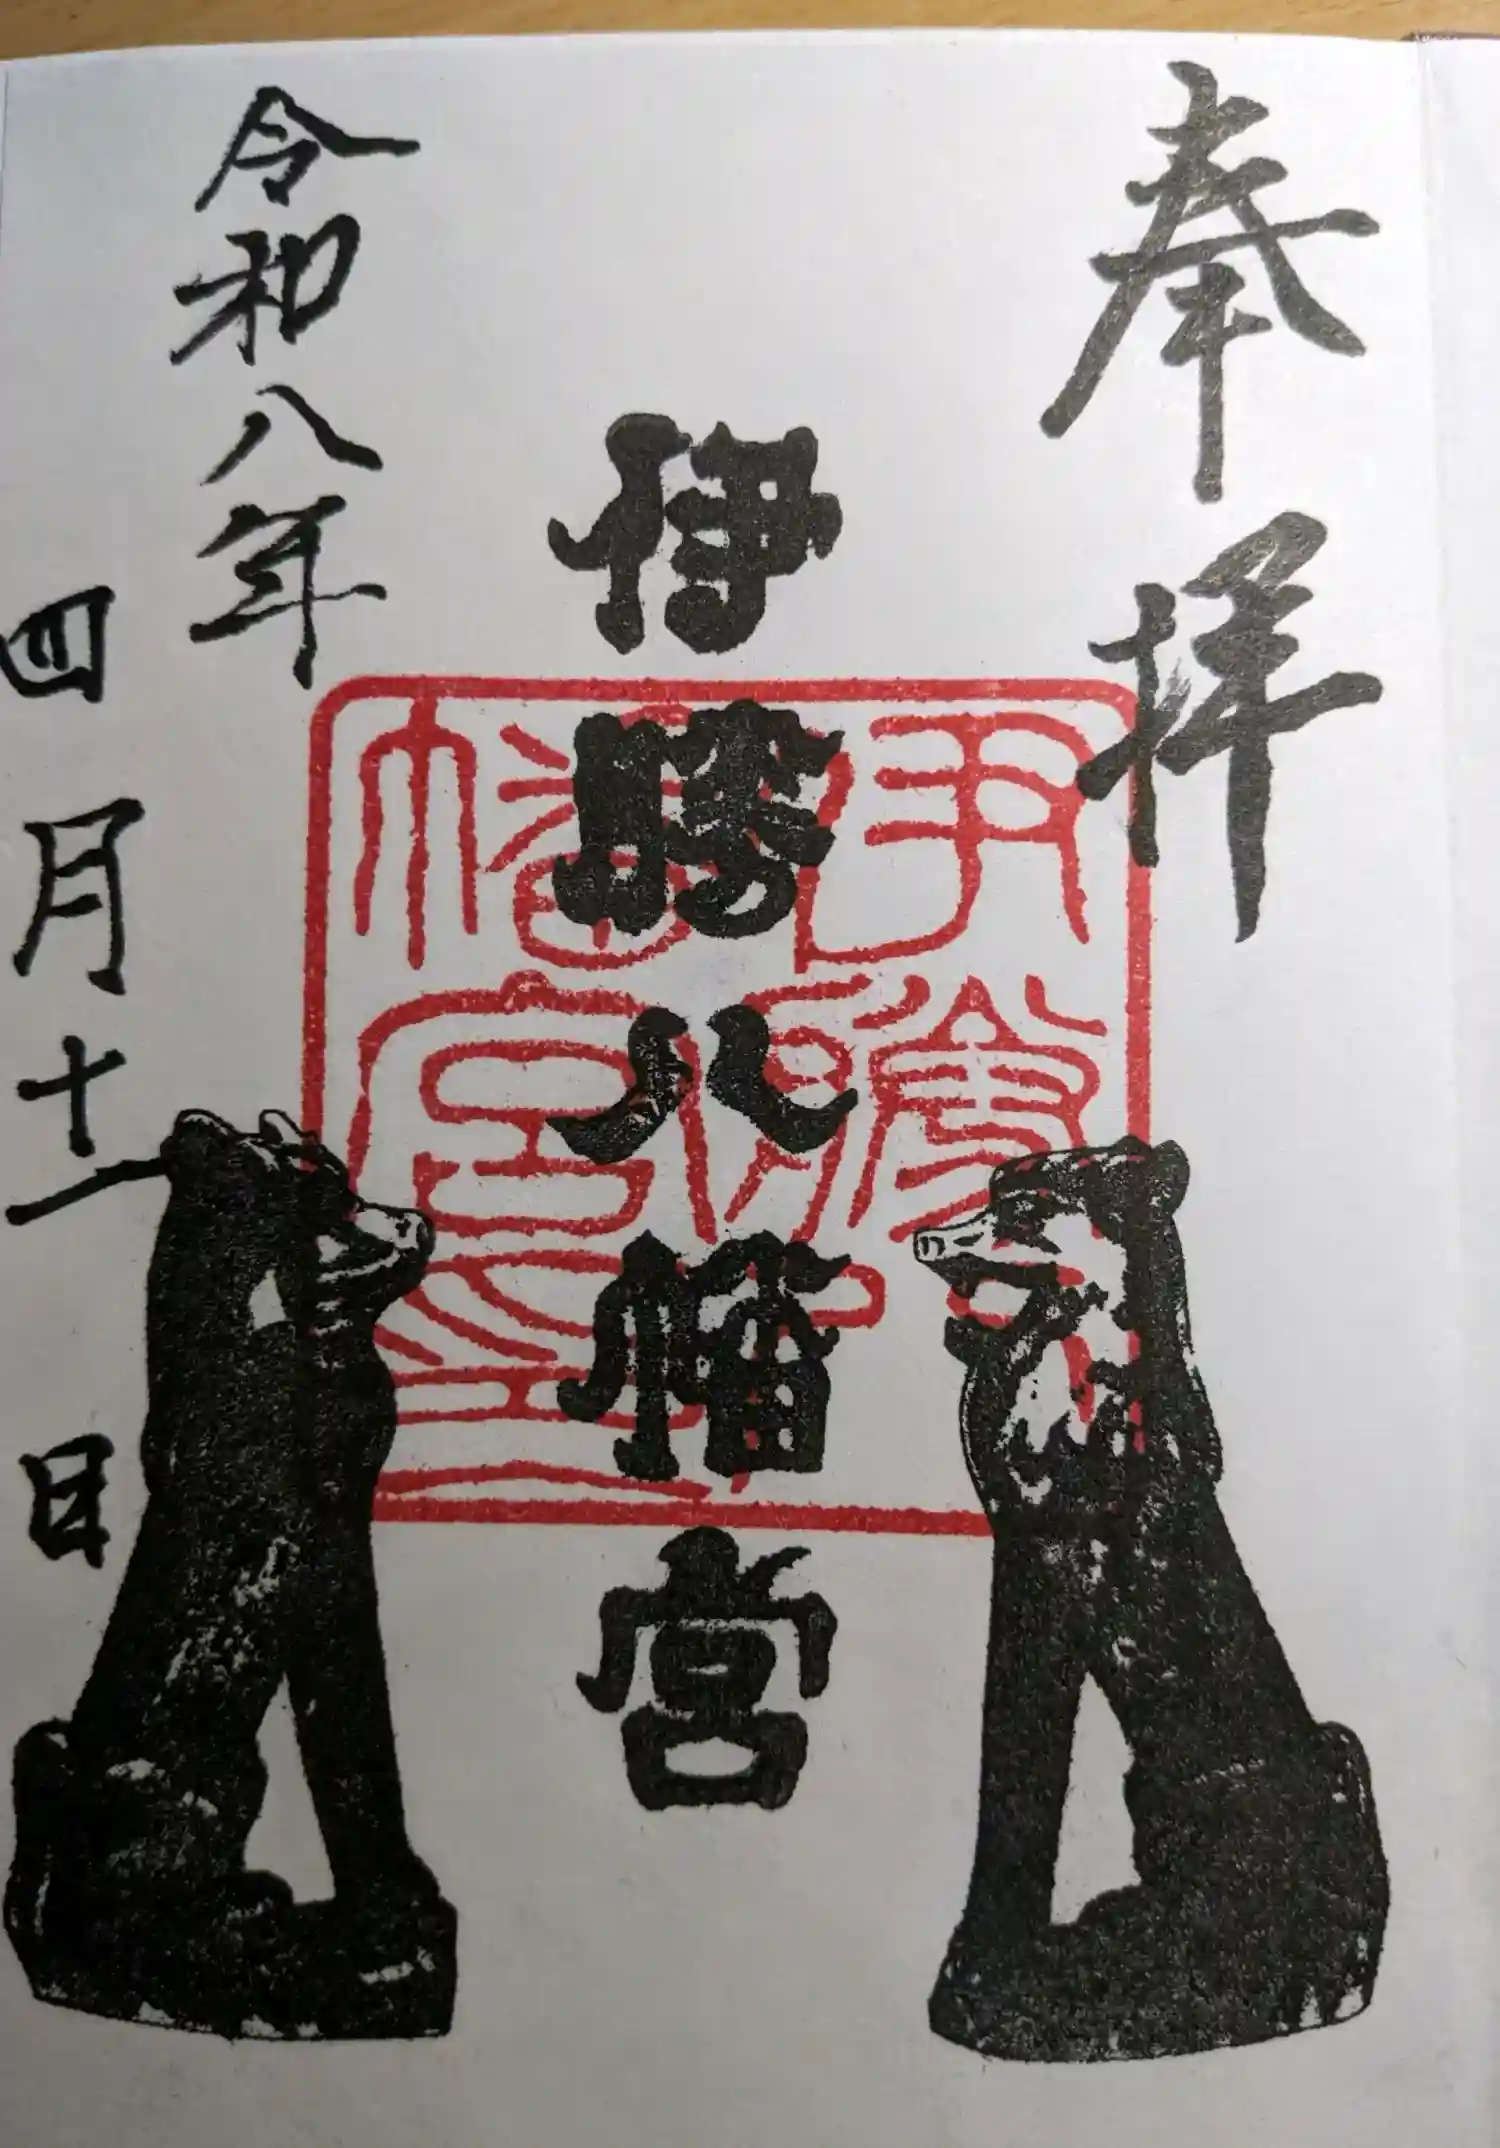 奉拝
伊勝八幡宮
伊勝八幡宮印
令和八年
四月十一日